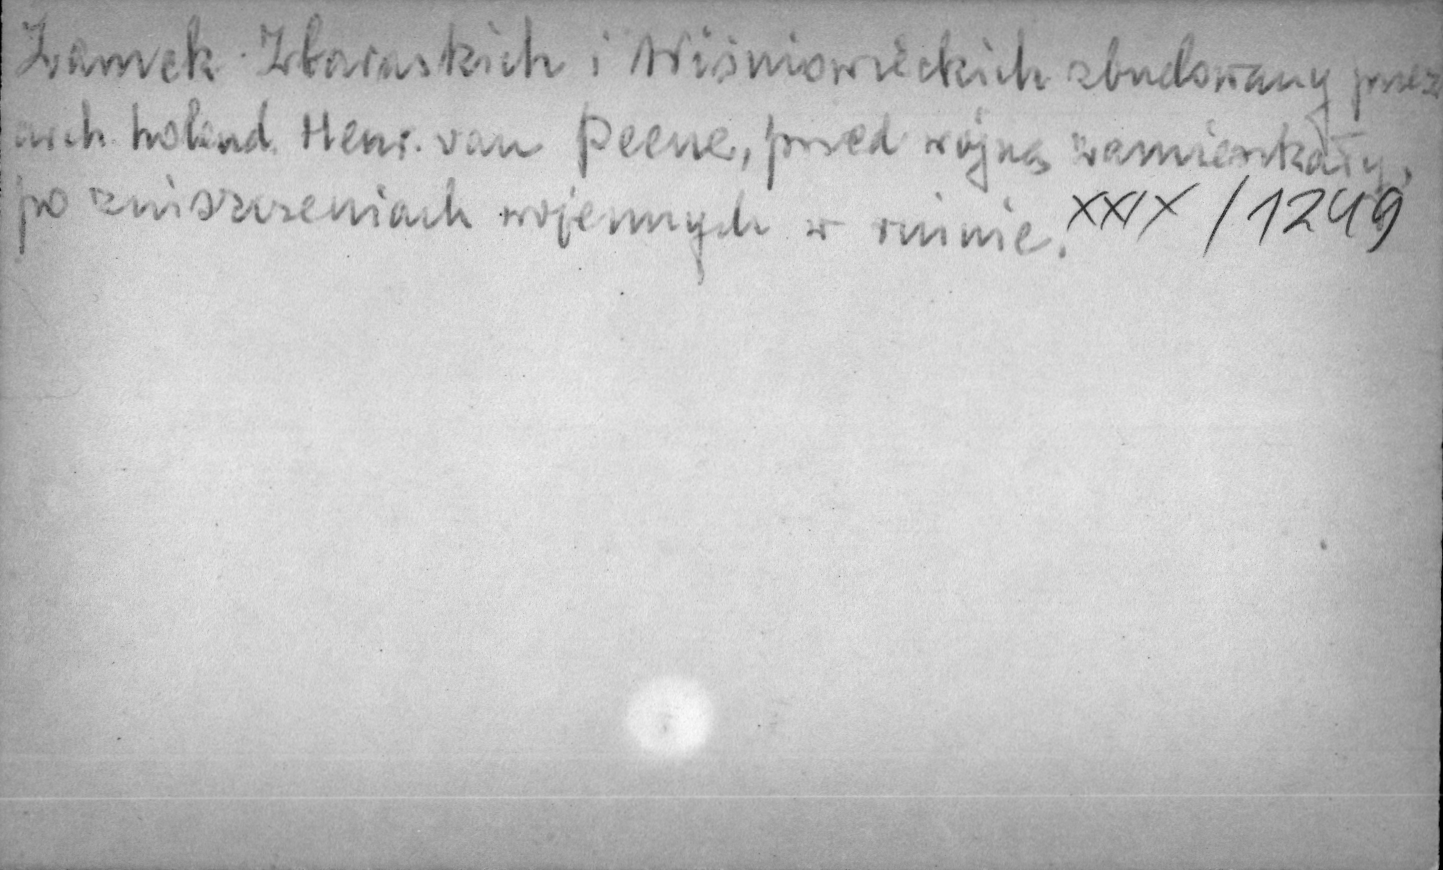 Zamek Zbaraskich i Wiśniowieckich zbudowany przez
arch. holend. Henr. van Peene, przed wojną zamieszkały,
po zniszczeniach wojennych w ruinie. XXIX/1249